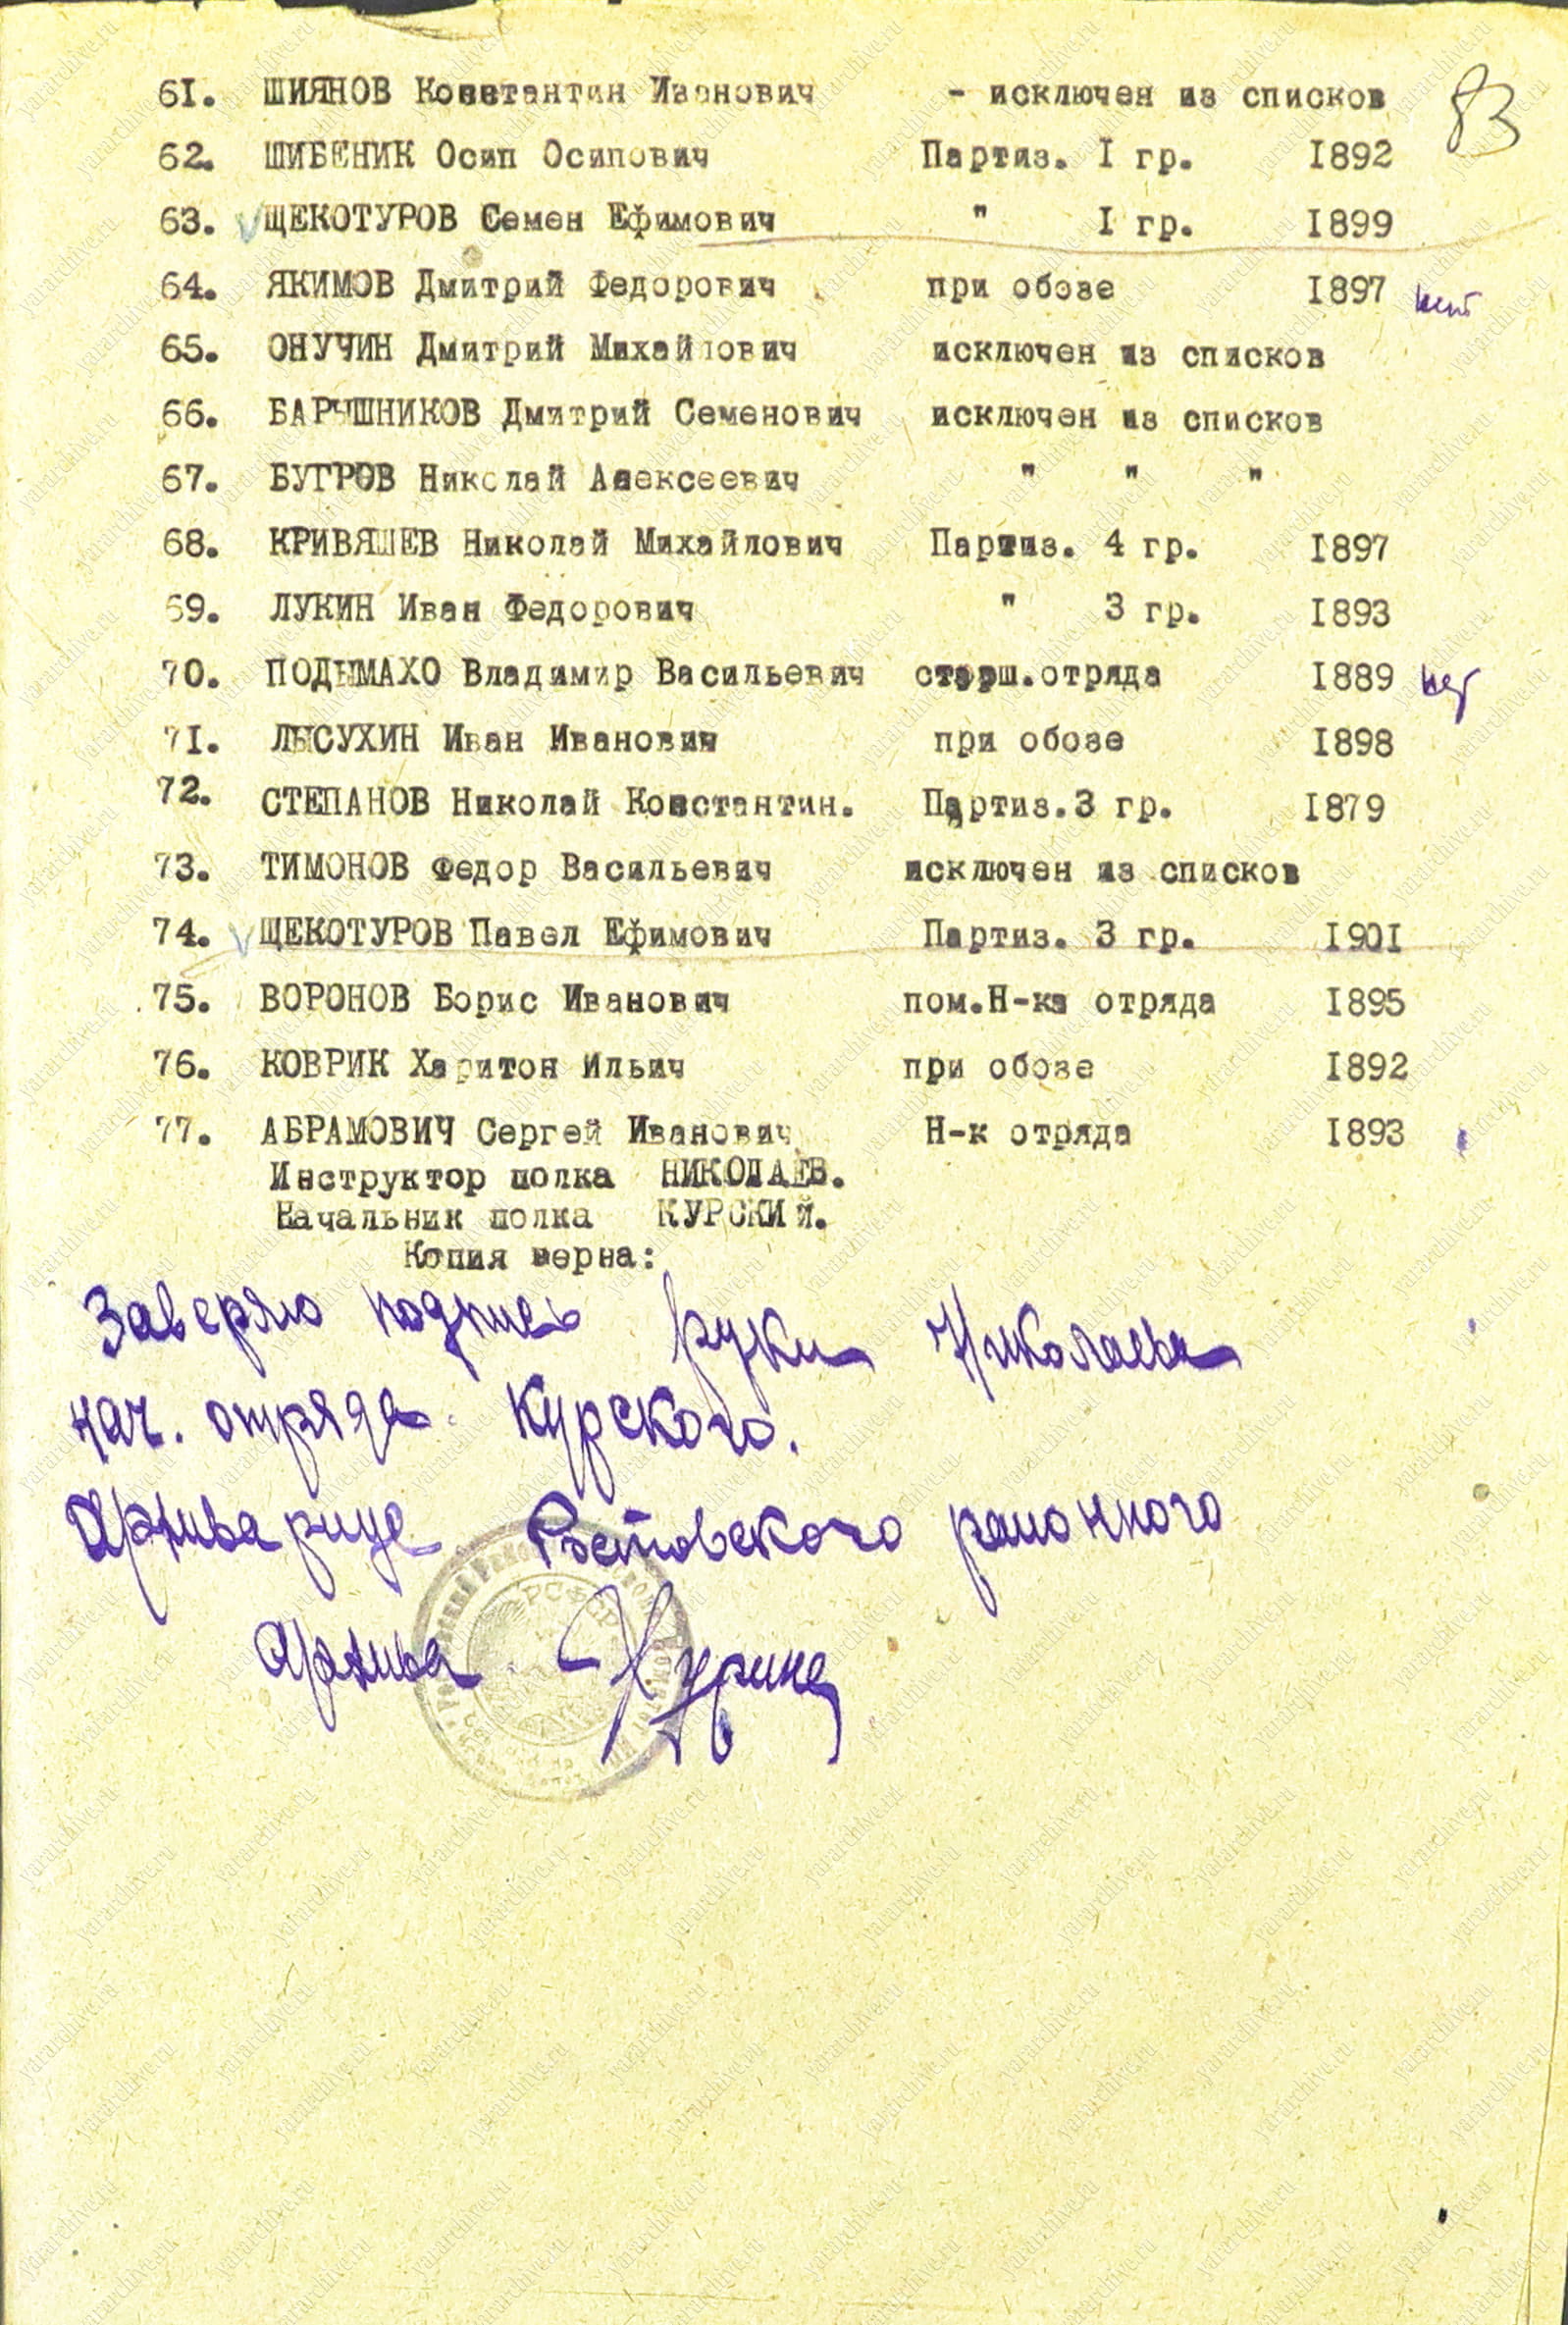 83
61. ШИЯНОВ Константин Иванович - исключен из списков
62. ШИБЕНИК Осип Осипович Партиз. I гр. I892
63. ЩЕКОТУРОВ Семен Ефимович " I гр. I899
64. ЯКИМОВ Дмитрий Федорович при обозе I897 нет
65. ОНУЧИН Дмитрий Михайлович исключен из списков
66. БАРЫШНИКОВ Дмитрий Семенович исключен из списков
67. БУГРОВ Николай Алексеевич " " "
68. КРИВЯШЕВ Николай Михайлович Партиз. 4 гр. I897
69. ЛУКИН Иван Федорович " 3 гр. I893
70. ПОДЫМАХО Владимир Васильевич старш.отряда I889 нет
7I. ЛЫСУХИН Иван Иванович при обозе I898
72. СТЕПАНОВ Николай Константин. Партиз.3 гр. I879
73. ТИМОНОВ Федор Васильевич исключен из списков
74. ЩЕКОТУРОВ Павел Ефимович Партиз. 3 гр. I90I
75. ВОРОНОВ Борис Иванович пом.Н-ка отряда I895
76. КОВРИК Харитон Ильич при обозе I892
77. АБРАМОВИЧ Сергей Иванович Н-к отряда I893
Инструктор полка НИКОЛАЕВ.
Начальник полка КУРСКИЙ.
Копия верна:
Заверяю подпись руки Николаева
нач. отряда Курского.
Архивариус Ростовского районного
архива
РСФСР
yararchive.ru